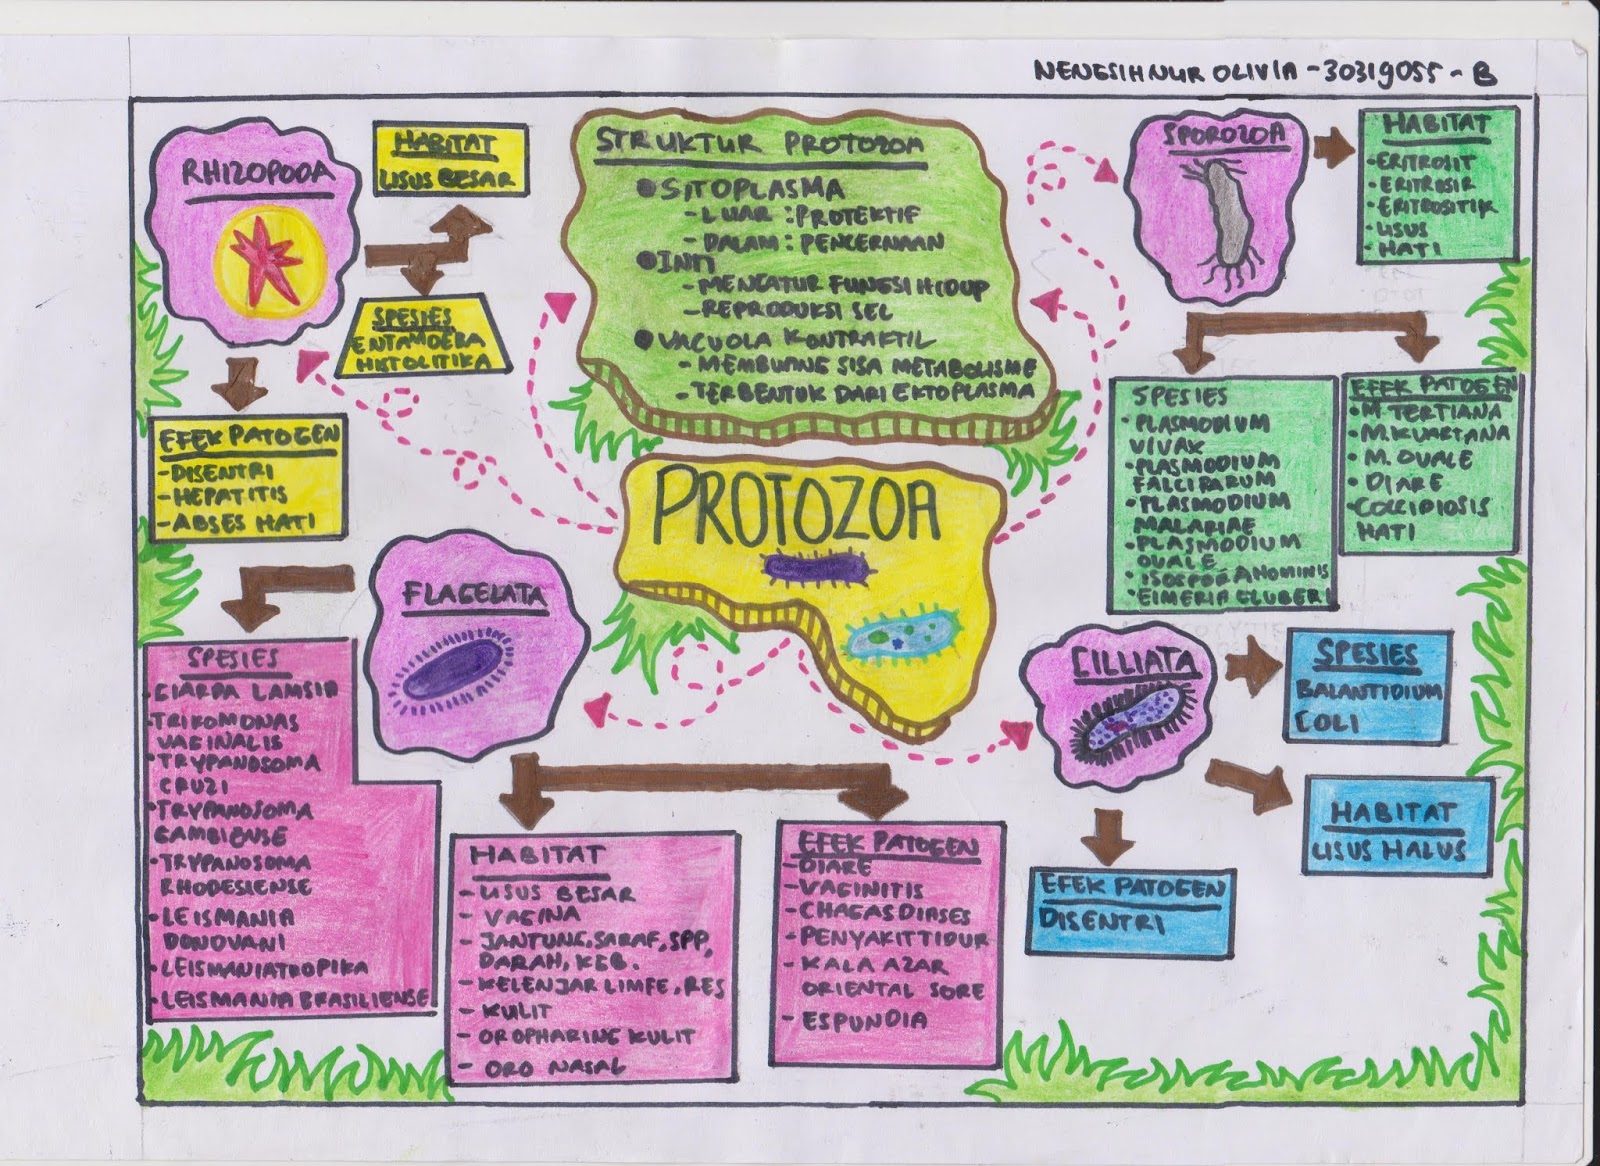 NENGSIH NUR OLIVIA - 30319055 - B
RHIZOPODA
HABITAT
USUS BESAR
SPESIES
ENTAMOEBA
HISTOLITIKA
EFEK PATOGEN
- DISENTRI
- HEPATITIS
- ABSES HATI
STRUKTUR PROTOZOA
• SITOPLASMA
- LUAR : PROTEKTIF
- DALAM : PENCERNAAN
• INTI
- MENGATUR FUNGSI HIDUP
- REPRODUKSI SEL
• VACUOLA KONTRAKTIL
- MEMBUANG SISA METABOLISME
- TERBENTUK DARI EKTOPLASMA
PROTOZOA
SPOROZOA
HABITAT
• ERITROSIT
• ERITROSIR
• ERITROSITIK
• USUS
• HATI
SPESIES
• PLASMODIUM
VIVAK
• PLASMODIUM
FALCIPARUM
• PLASMODIUM
MALARIAE
• PLASMODIUM
OVALE
• ISOSPORA HOMINIS
• EIMERIA GLUBERI
EFEK PATOGEN
• M. TERTIANA
• M. KUARTANA
• M. OVALE
• DIARE
• COCCIDIOSIS
HATI
FLAGELATA
SPESIES
• GIARDA LAMSIA
• TRIKOMONAS
VAGINALIS
• TRYPANOSOMA
CRUZI
• TRYPANOSOMA
GAMBIENSE
• TRYPANOSOMA
RHODESIENSE
• LEISMANIA
DONOVANI
• LEISMANIA TROPIKA
• LEISMANIA BRASILIENSE
HABITAT
- USUS BESAR
- VAGINA
- JANTUNG, SARAF, SPP,
DARAH, KGB.
- KELENJAR LIMFE, RES
- KULIT
- OROPHARING KULIT
- ORO NASAL
EFEK PATOGEN
- DIARE
- VAGINITIS
- CHAGAS DIASES
- PENYAKIT TIDUR
- KALA AZAR
ORIENTAL SORE
- ESPUNDIA
CILLIATA
SPESIES
BALANTIDIUM
COLI
HABITAT
USUS HALUS
EFEK PATOGEN
DISENTRI